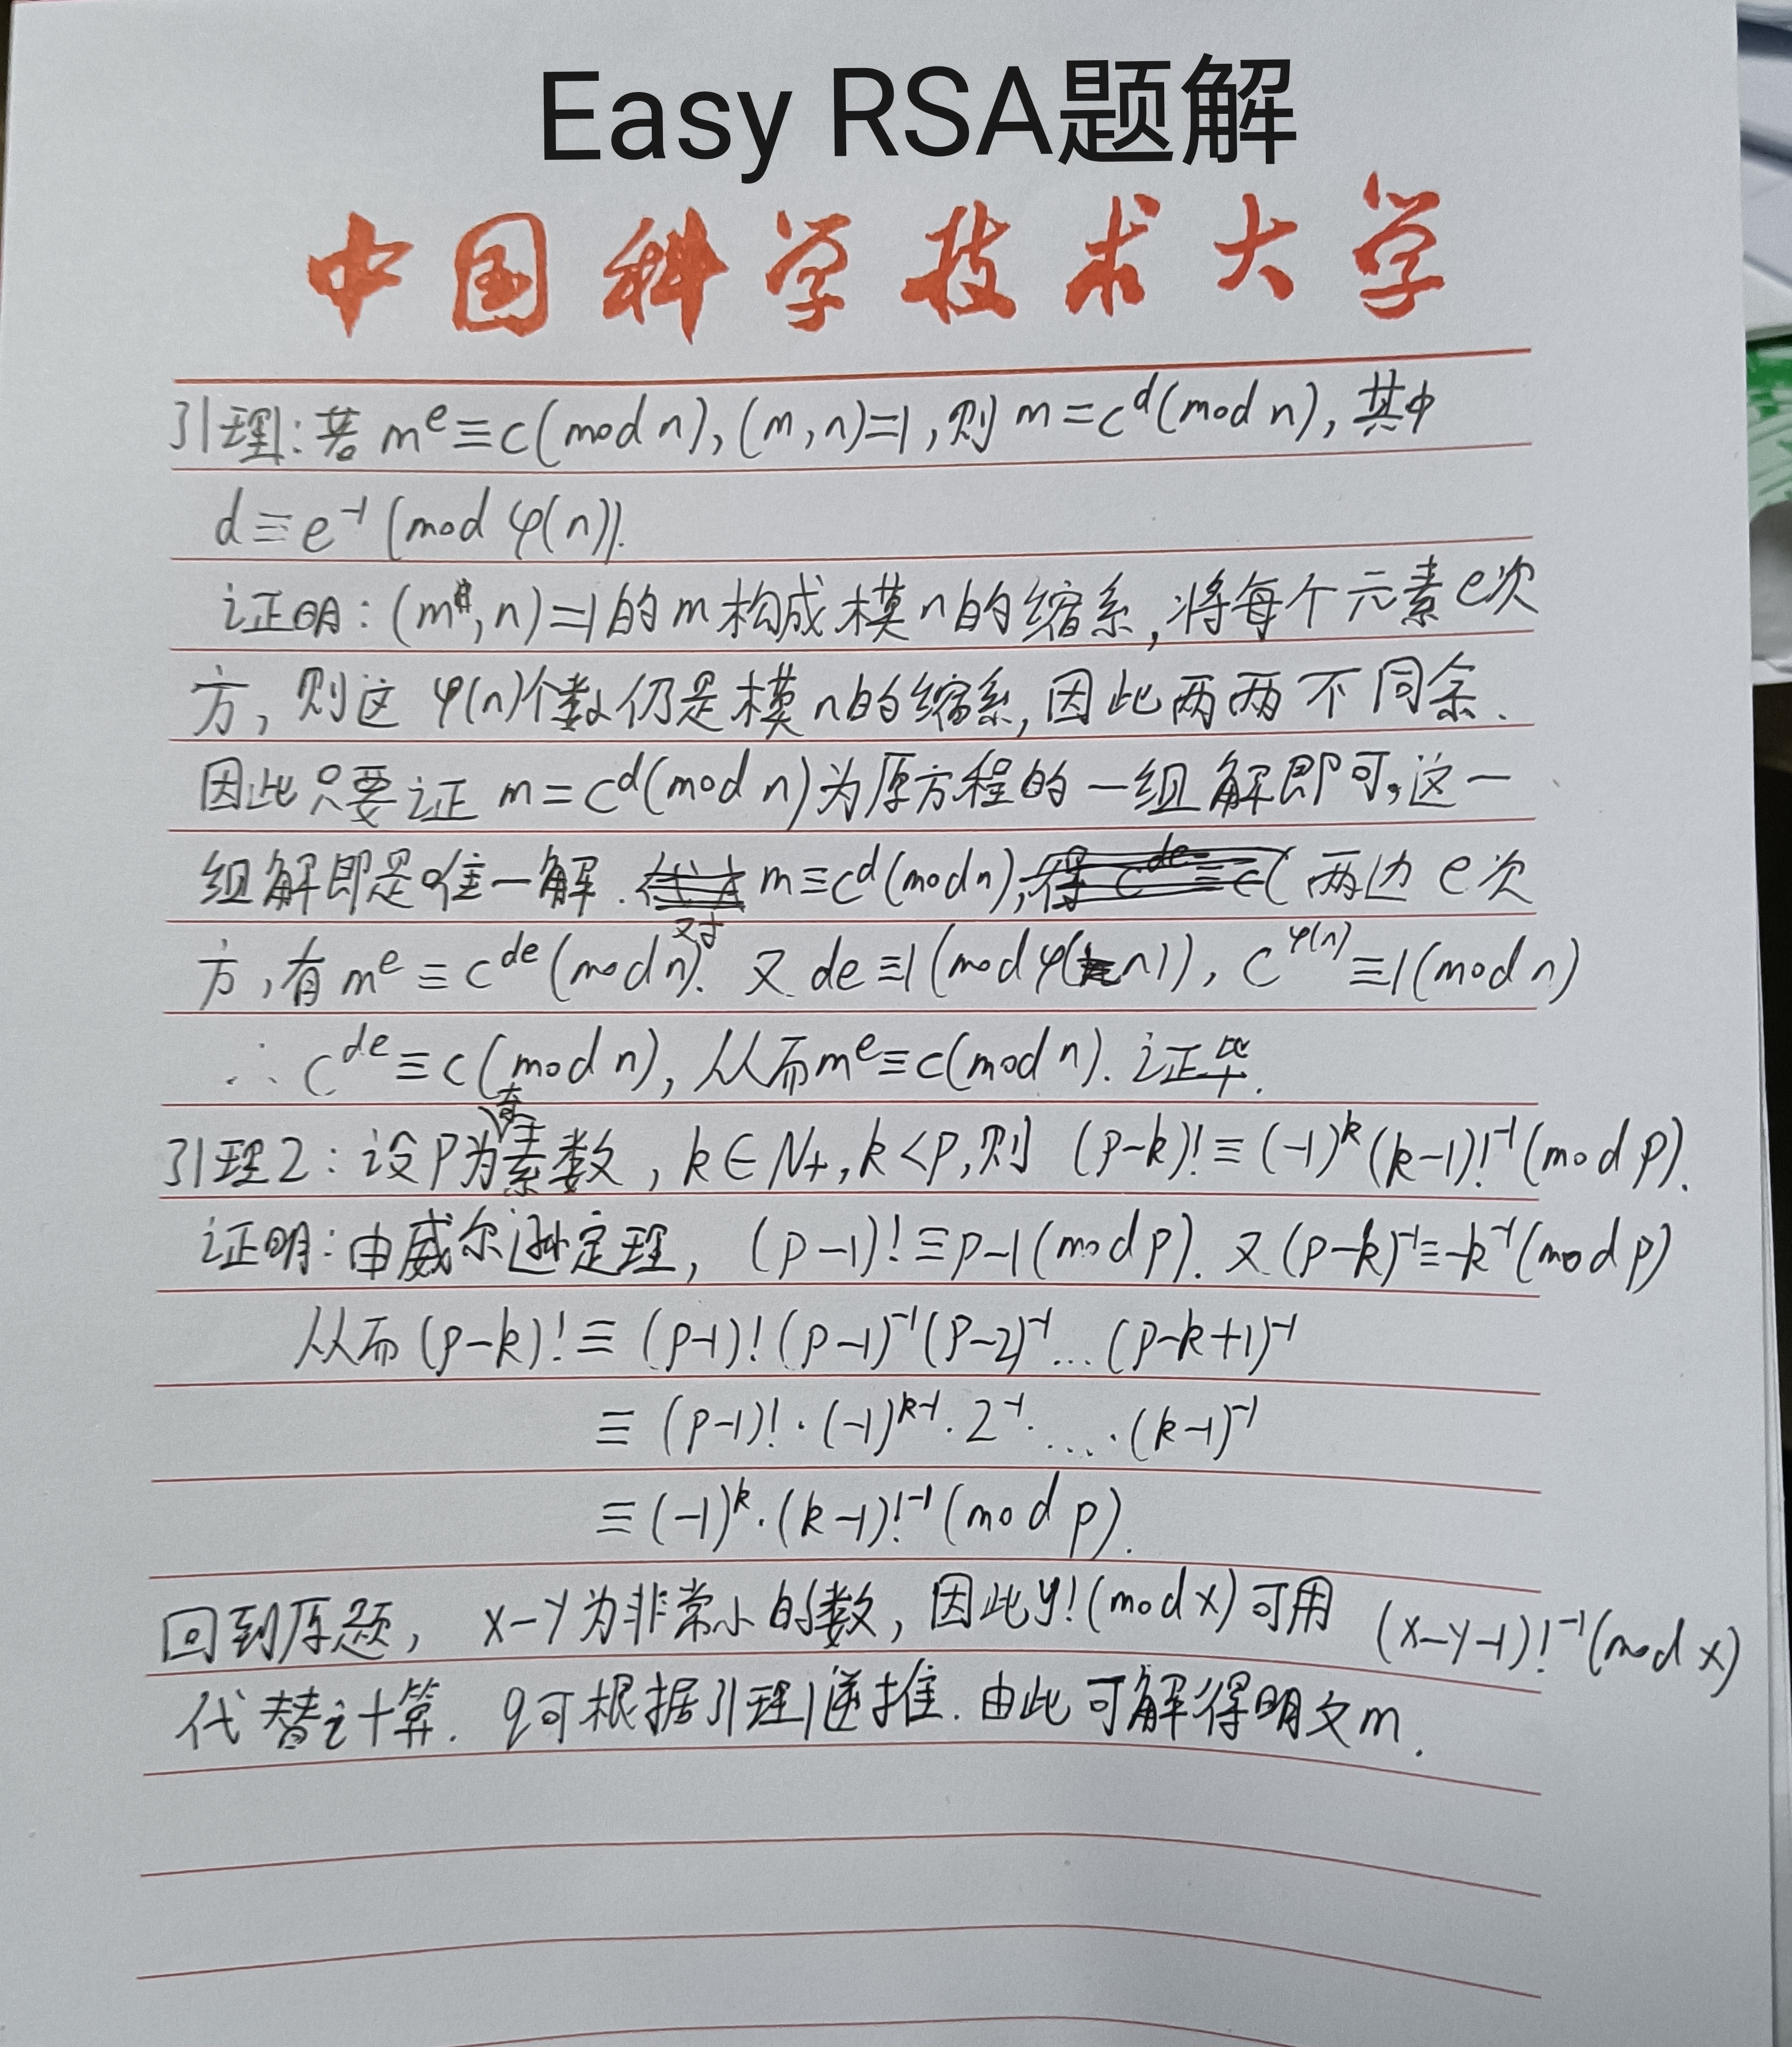 Easy RSA题解
中国科学技术大学
引理1:若 m^e≡c(mod n),(m,n)=1,则 m=c^d(mod n),其中
d≡e^-1(mod φ(n)).
证明:(m,n)=1的m构成模n的缩系,将每个元素e次
方,则这φ(n)个数仍是模n的缩系,因此两两不同余.
因此只要证 m=c^d(mod n)为原方程的一组解即可,这一
组解即是唯一解. 对 m≡c^d(mod n), 两边e次
方,有m^e≡c^de(mod n). 又 de≡1(mod φ(n)), c^φ(n)≡1(mod n)
∴ c^de≡c(mod n),从而m^e≡c(mod n). 证毕.
引理2:设p为奇素数,k∈N+,k<p,则 (p-k)!≡(-1)^k(k-1)!^-1(mod p).
证明:由威尔逊定理, (p-1)!≡p-1(mod p). 又(p-k)^-1≡-k^-1(mod p)
从而(p-k)!≡(p-1)!(p-1)^-1(p-2)^-1...(p-k+1)^-1
≡(p-1)!·(-1)^k-1·2^-1·....·(k-1)^-1
≡(-1)^k·(k-1)!^-1(mod p).
回到原题, x-y为非常小的数,因此y!(mod x)可用 (x-y-1)!^-1(mod x)
代替计算. q可根据引理1递推.由此可解得明文m.